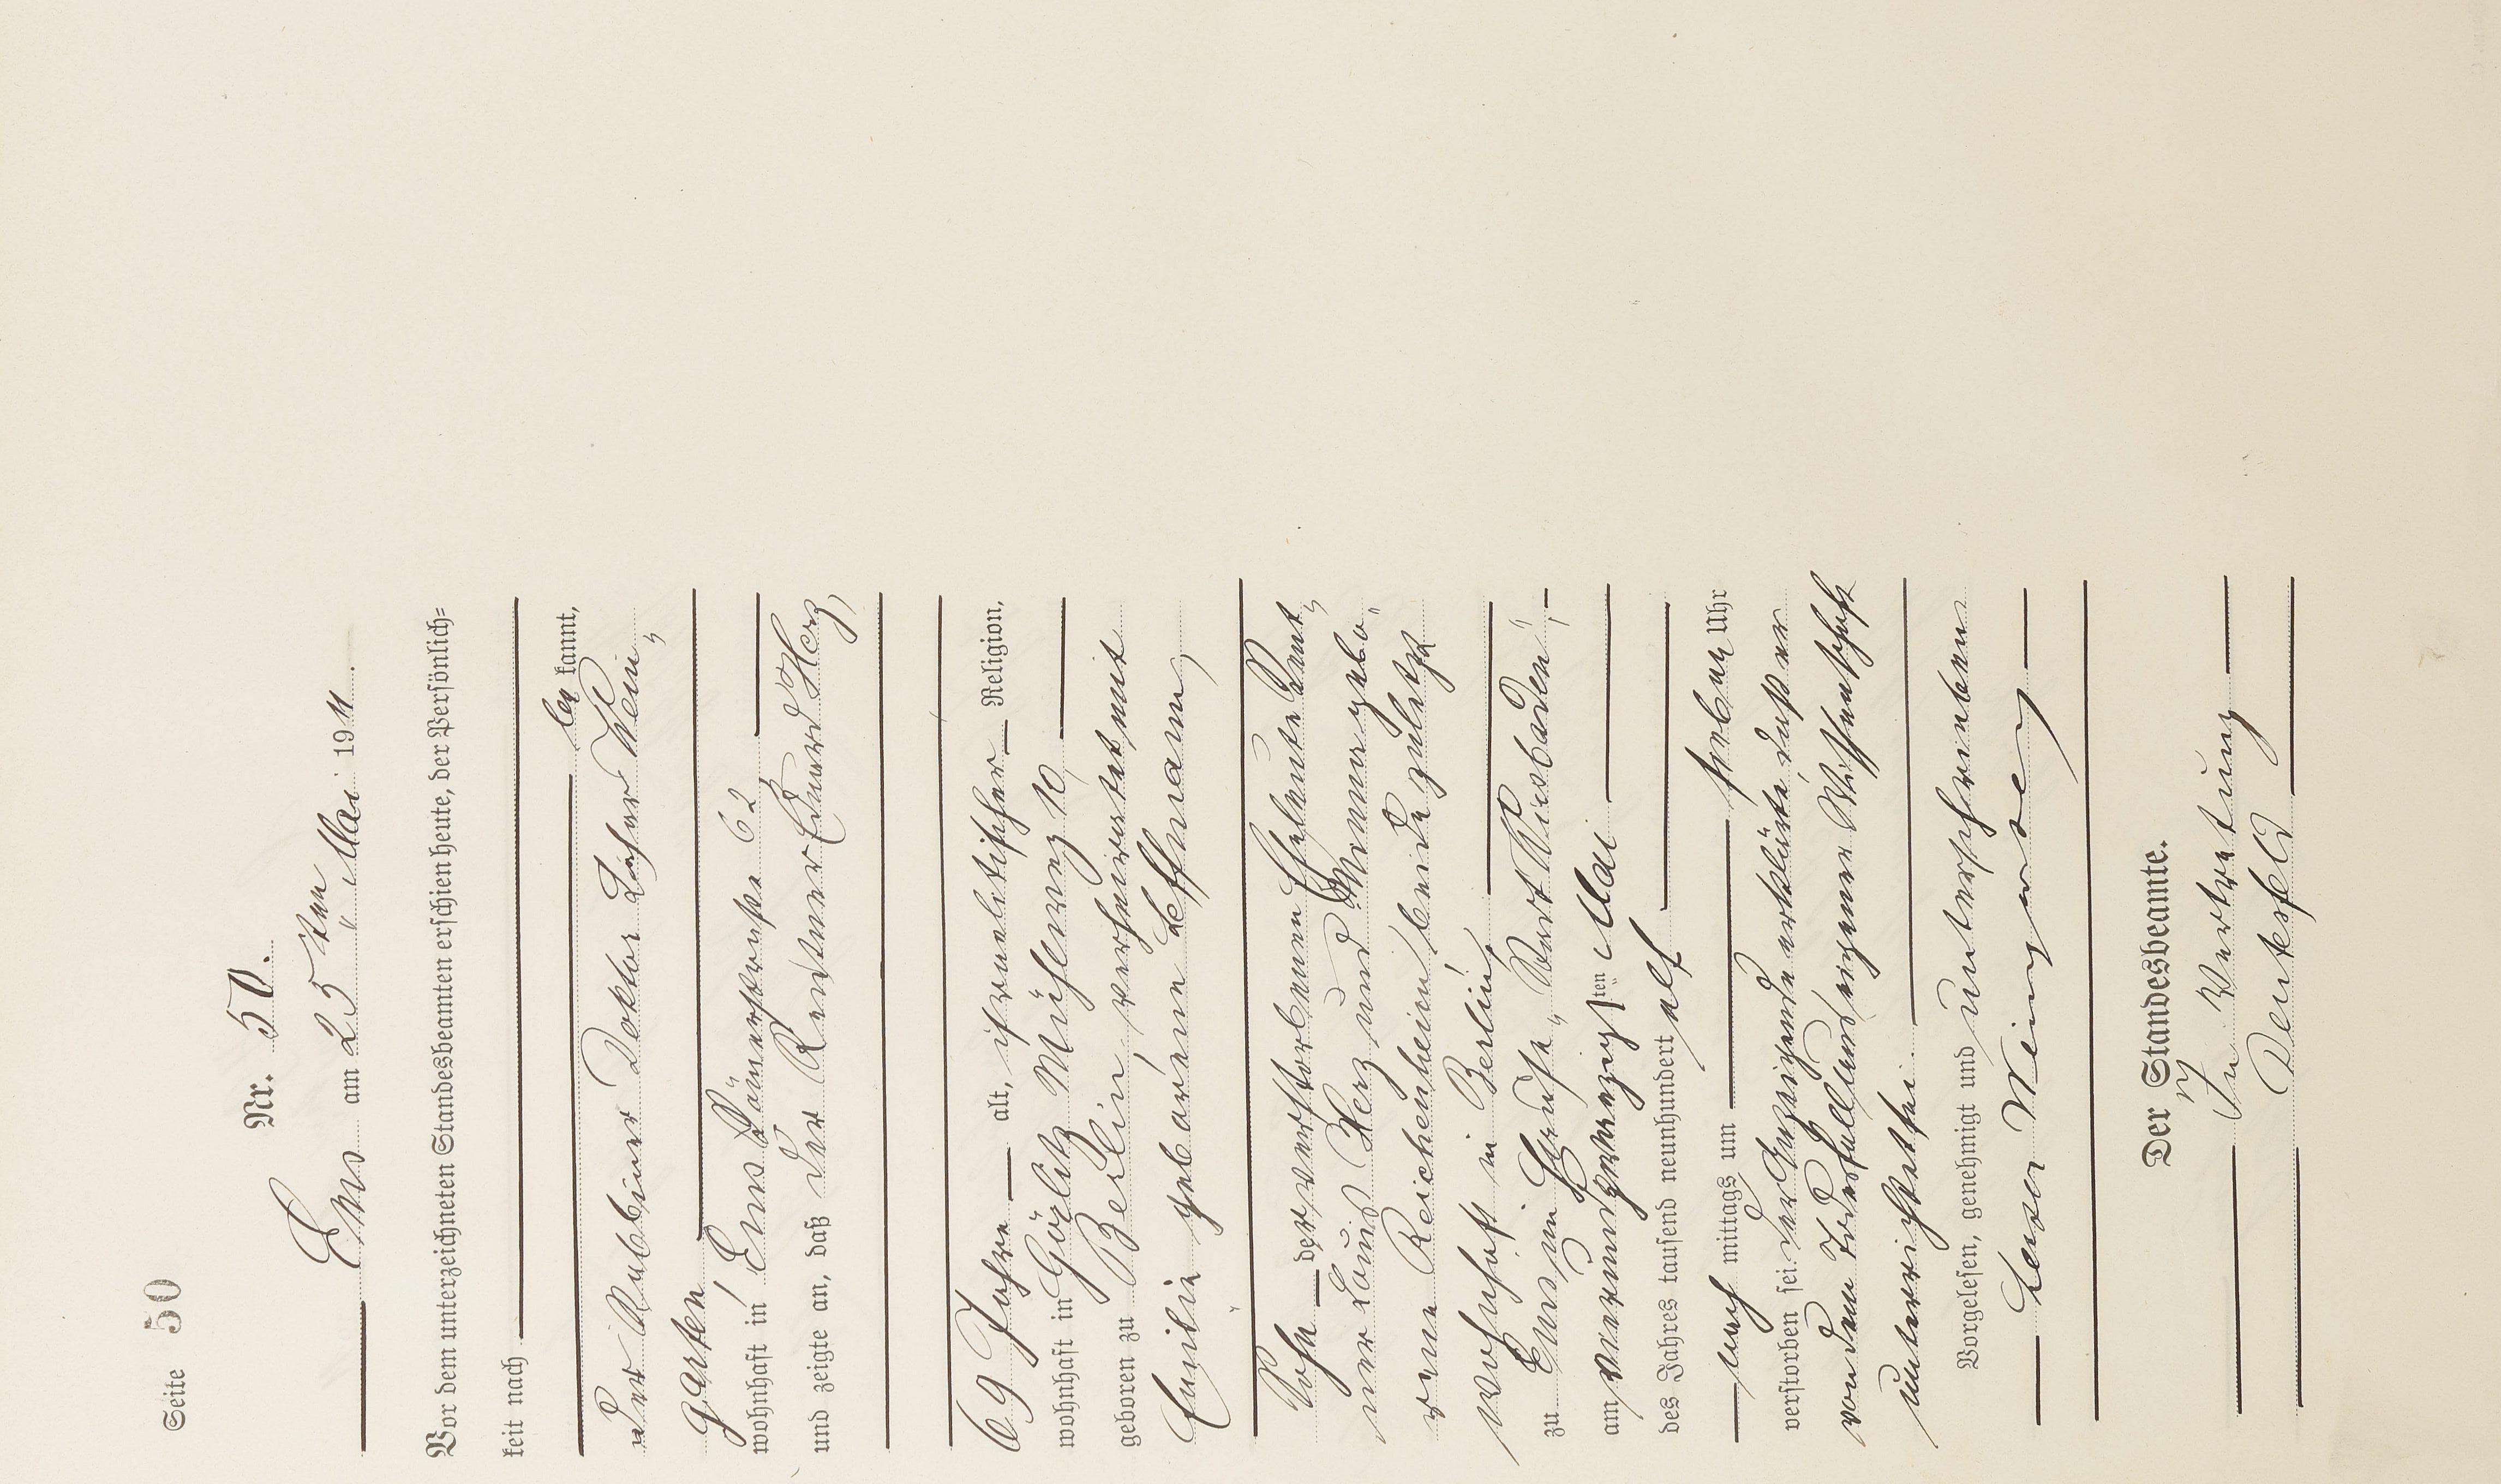 Seite 50
Nr. 50.
Ems am 25 ten Mai 1911.
Vor dem unterzeichneten Standesbeamten erschien heute, der Persönlich=
keit nach
be kannt,
der Rabbiner Doktor Laser Wein„
garten
wohnhaft in Ems Römerstraße 62
und zeigte an, daß der Rentner Eduard Herz,
69 Jahre alt, israelitischer Religion,
wohnhaft in Görlitz Mühlweg 10,
geboren zu Berlin, verheiratet mit
Emilie geborene Leffmann,
Sohn der verstorbenen Eheleute Rent„
ner Louis Herz und Minna gebo„
rene Reichenheim, beide zuletzt
wohnhaft in Berlin,
zu Ems im Hause „Stadt Wiesbaden“,
am vierundzwanzigsten Mai
des Jahres tausend neunhundert elf
nach mittags um sieben Uhr
verstorben sei. Der Anzeigende erklärte, daß er
von dem Todesfall aus eigener Wissenschaft
unterrichtet sei.
Vorgelesen, genehmigt und unterschrieben
Laser Weingarten
Der Standesbeamte.
In Vertretung